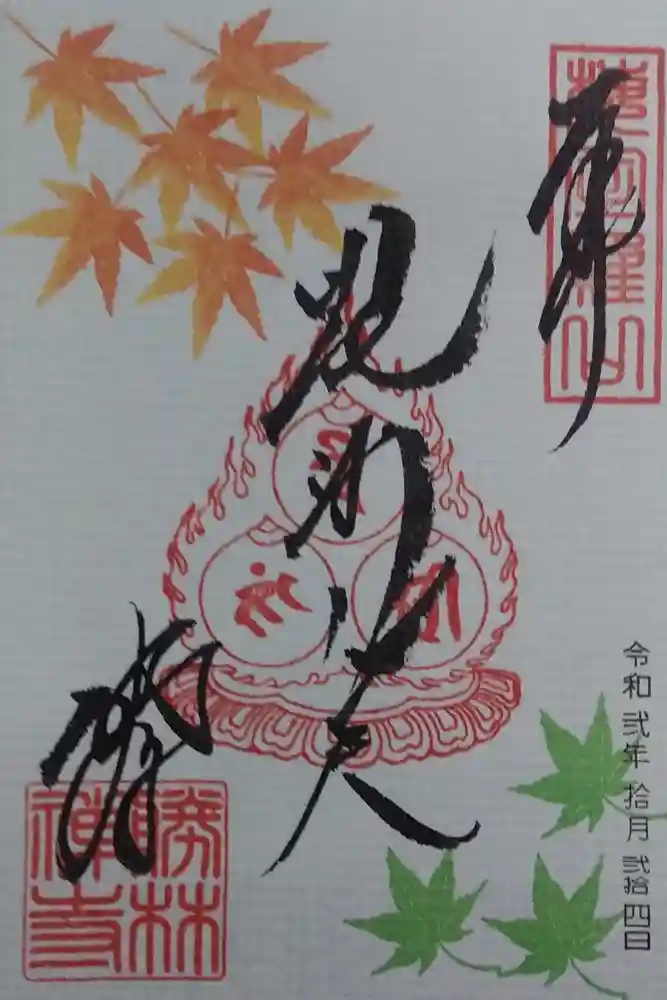 奉拝
毘沙門天
勝林
禅寺
令和弐年 拾月 弐拾四日